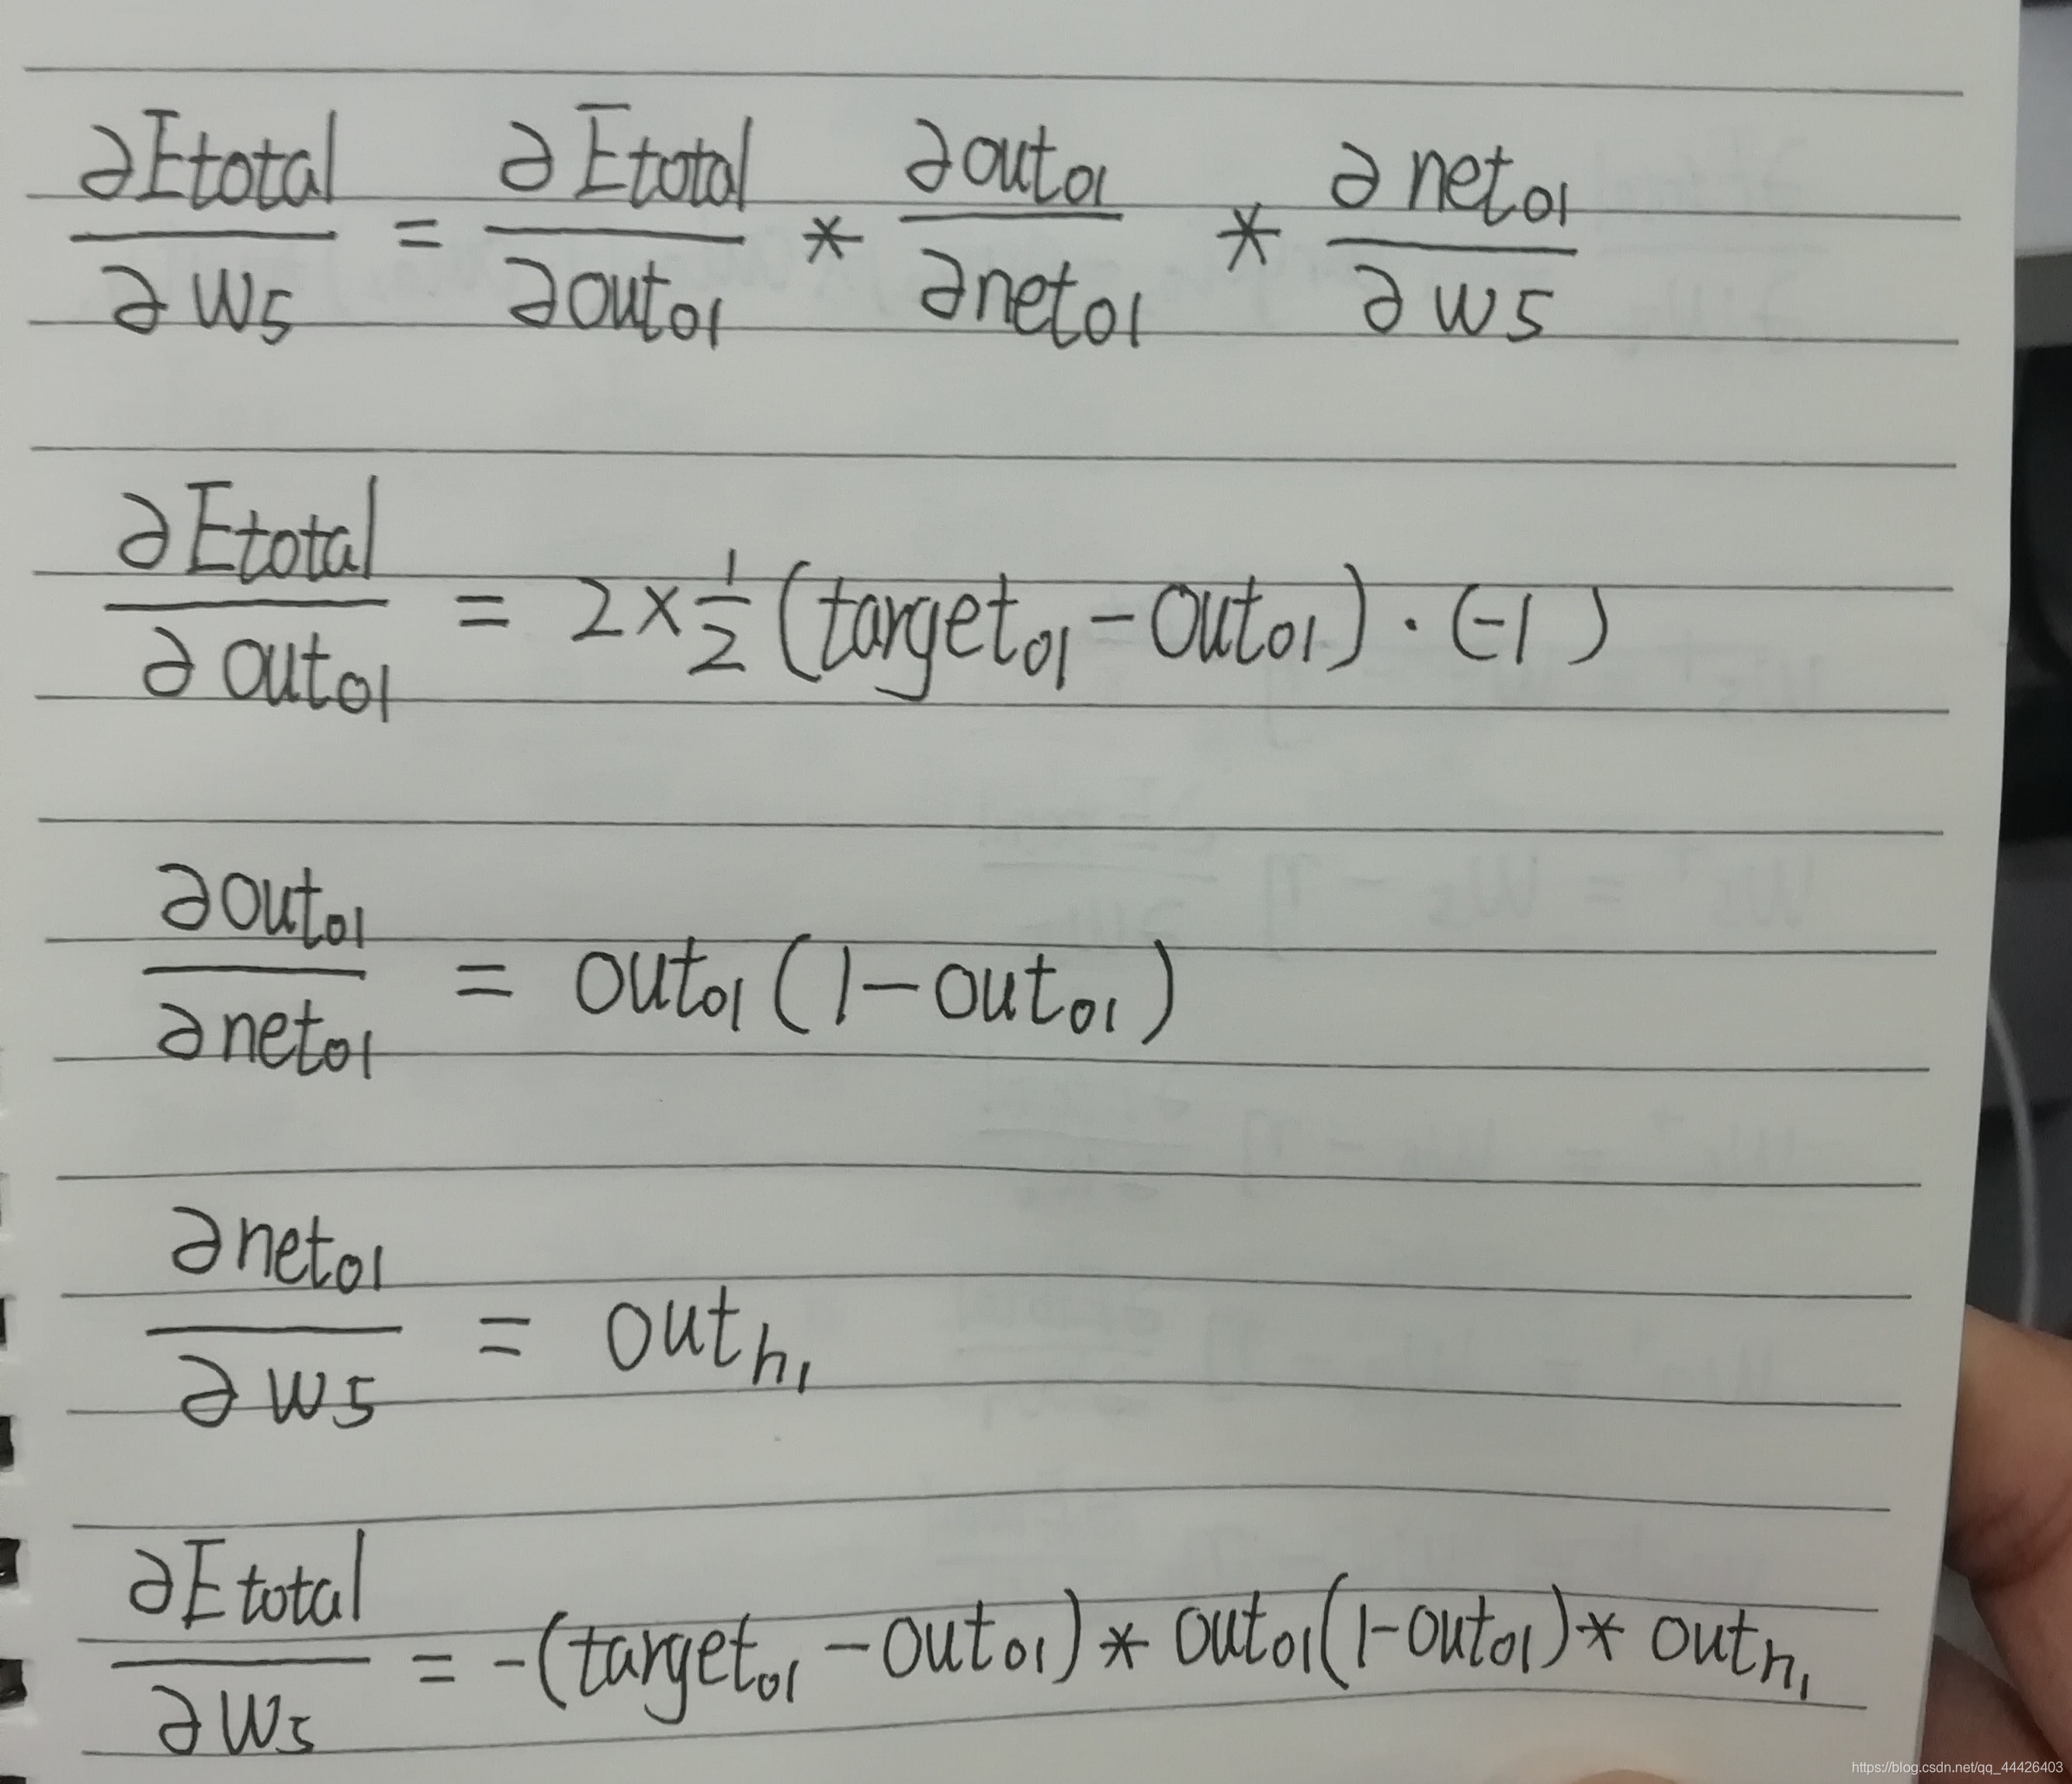 ∂Etotal/∂w5 = ∂Etotal/∂out₀₁ * ∂out₀₁/∂net₀₁ * ∂net₀₁/∂w5
∂Etotal/∂out₀₁ = 2×½(target₀₁-out₀₁)·(-1)
∂out₀₁/∂net₀₁ = out₀₁(1-out₀₁)
∂net₀₁/∂w5 = out h₁
∂Etotal/∂w5 = -(target₀₁-out₀₁)*out₀₁(1-out₀₁)*out h₁
https://blog.csdn.net/qq_44426403